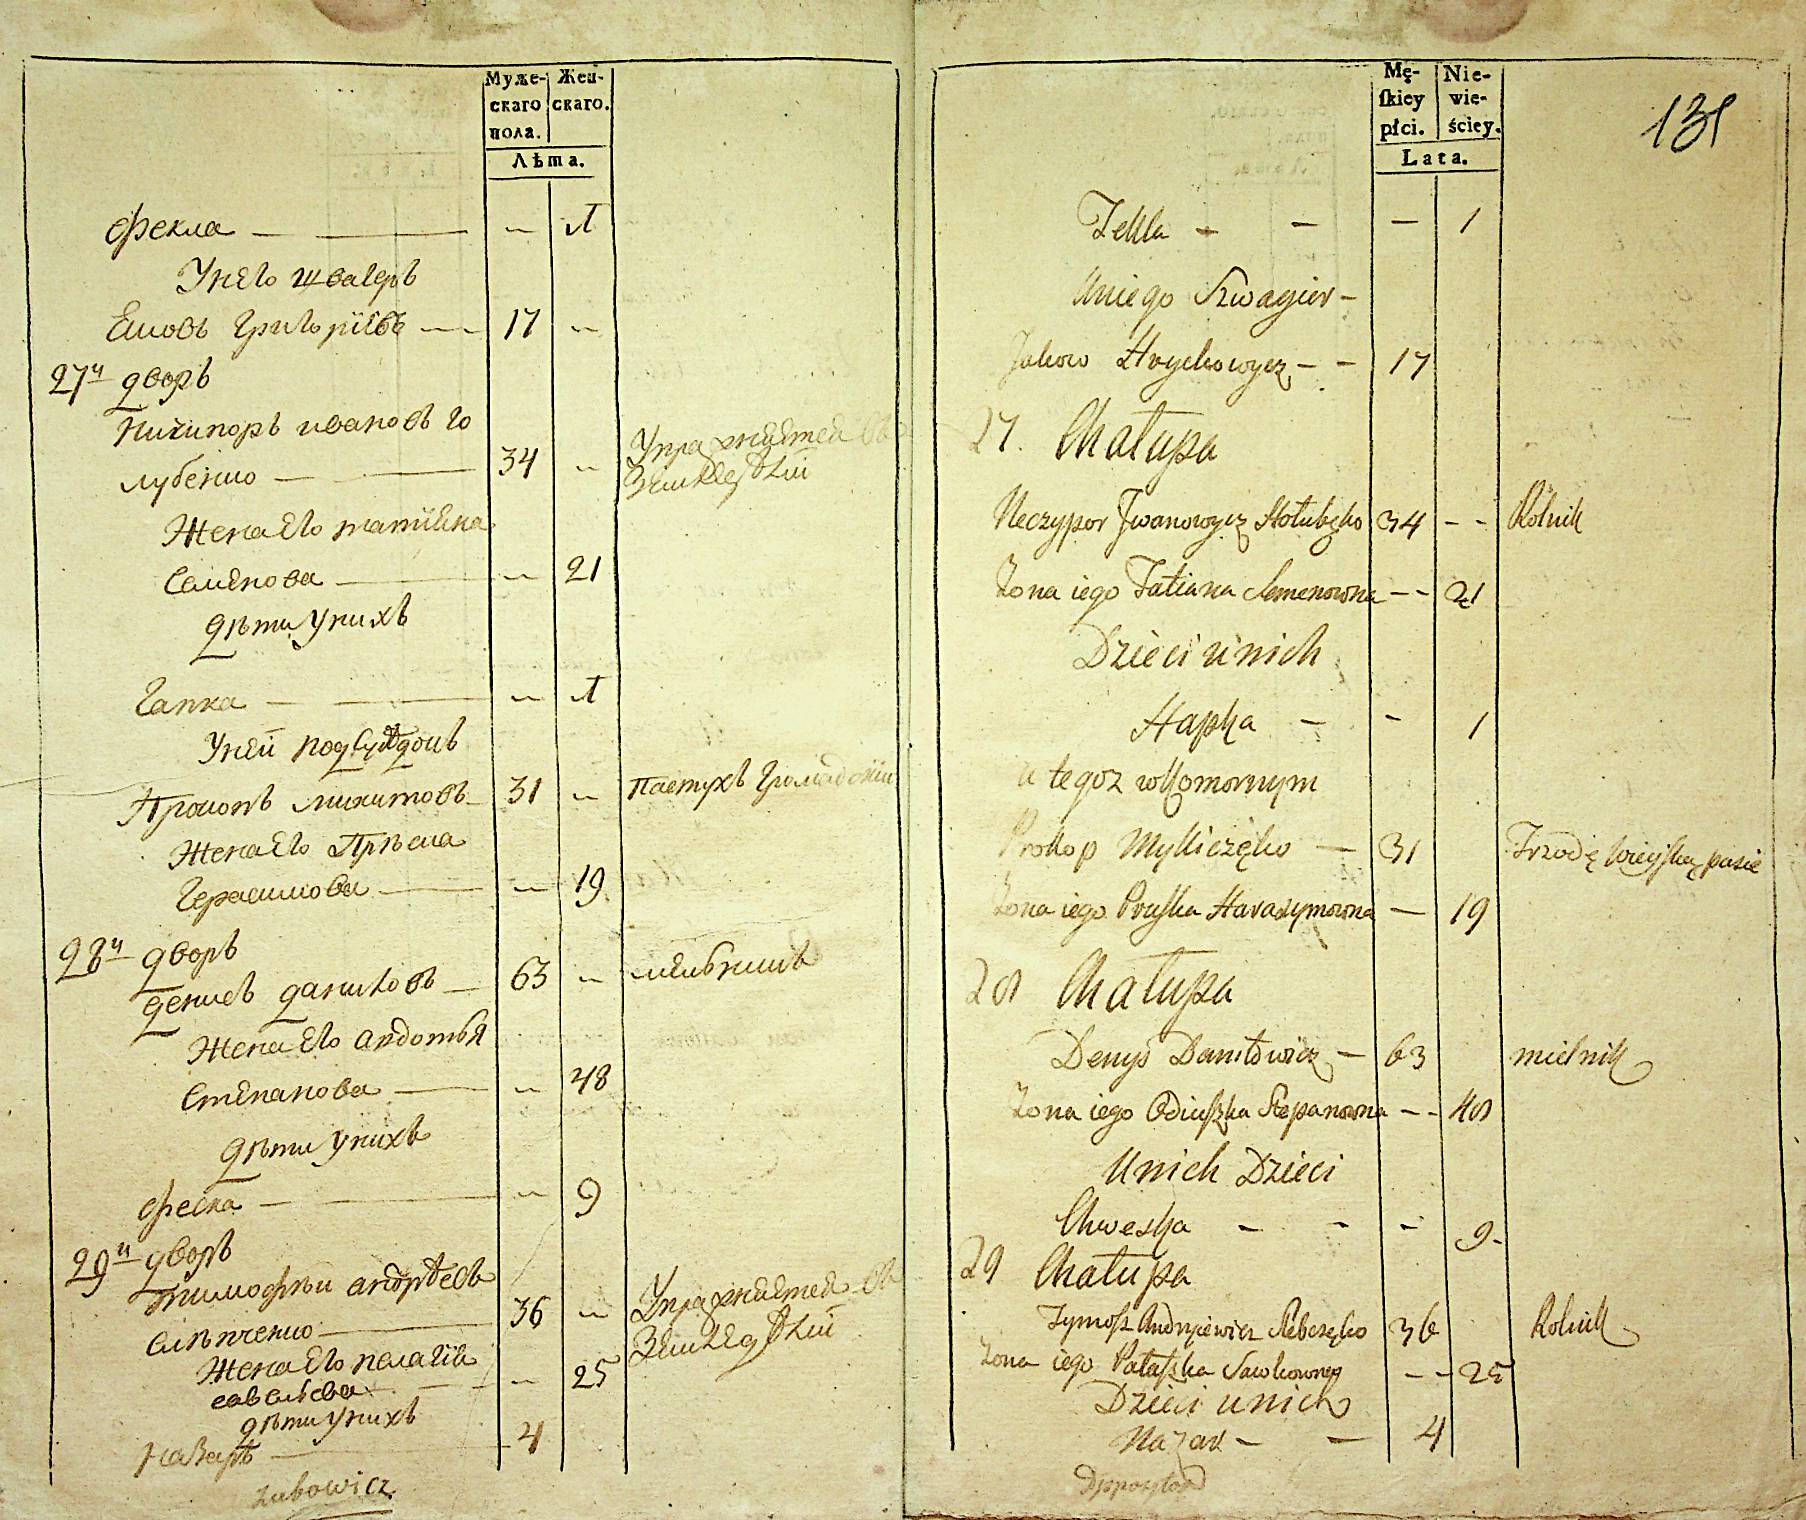 Муже-
скаго
пола.
Жен-
скаго.
Лѣта.
Фекла — — 1
Унего швагеръ
Яковъ Григоріевъ — 17 —
27й дворъ
Ничипоръ ивановъ го
лубенко — 34 — Упражняется въ
земледѣлїи
Жена его татїяна
Семенова — — 21
Дѣти унихъ
Гапка — — 1
Уней подсусѣдокъ
Прокопъ микитовъ 31 — Пастухъ
Жена его Прѣска
Герасимова — — 19
28й дворъ
Денисъ даниловъ — 63 — мельникъ
Жена его авдотья
Степанова — — 48
Дѣти унихъ
Феска — — 9
29й дворъ
Тимофѣи андрѣевъ
слѣпченко — 36 — Упражняется въ
земледѣлїи
Жена его пелагїя
савельева — — 25
дѣти унихъ
Назаръ — 4
Lubowicz
Mę-
ſkiey
płci.
Nie-
wie-
ściey.
Lata.
131
Tekla - - — 1
Uniego Szwagier -
Jakow Hryckowycz - - 17
27. Chałupa
Neczypor Jwanowycz Hołubęko 34 - - Rolnik
Żona iego Tatiana Semenowna - - 21
Dzieci unich
Hapka - - 1
u tegoz wkomornym
Prokop Mykiczęko — 31 Trzodę wieyską pasie
Żona iego Pruska Harasymowna — 19
28 Chałupa
Denys Daniłowicz — 63 mielnik
Żona iego Odiuszka Stepanowna - - 48
Unich Dzieci
Chweska - - - 9-
29 Chałupa
Tymosz Andryiewicz Slebczęko 36 Rolnik
Żona iego Pałaszka Sawkowna - - 25
Dzieci unich
Nazar - — 4